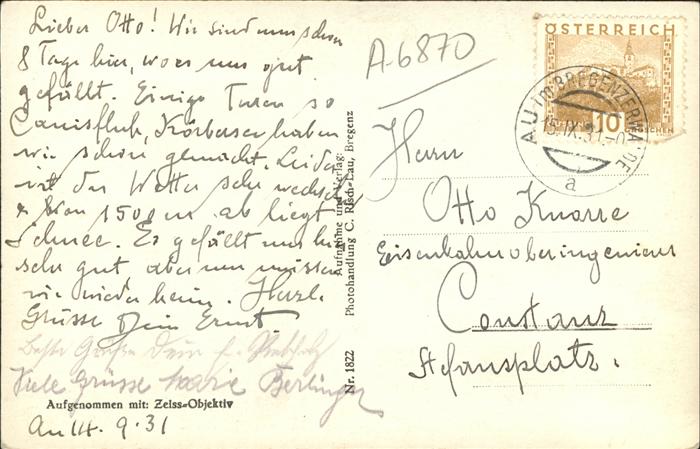 Lieber Otto! Wir sind nun schon
8 Tage hier, wo es uns gut
gefällt. Einige Turen so
Canisfluh, Körbersee haben
wir schon gemacht. Leider
ist das Wetter sehr wechselnd
von 1500 m ab liegt
Schnee. Es gefällt uns hier
sehr gut, aber nun müssen
wir wieder heim. Herzl.
Grüsse Dein Ernst
Beste Grüße Dein
Viele Grüsse Marie Berlinger
Aufgenommen mit: Zeiss-Objektiv
Au 14. 9. 31
Nr. 1822
Aufnahme und Verlag:
Photohandlung C. Risch-Lau, Bregenz
A-6870
ÖSTERREICH
10
GROSCHEN
AU im BREGENZERWALDE
15.IX.31
a
Herrn
Otto Knorre
Eisenbahnoberingenieur
Constanz
Stefansplatz.